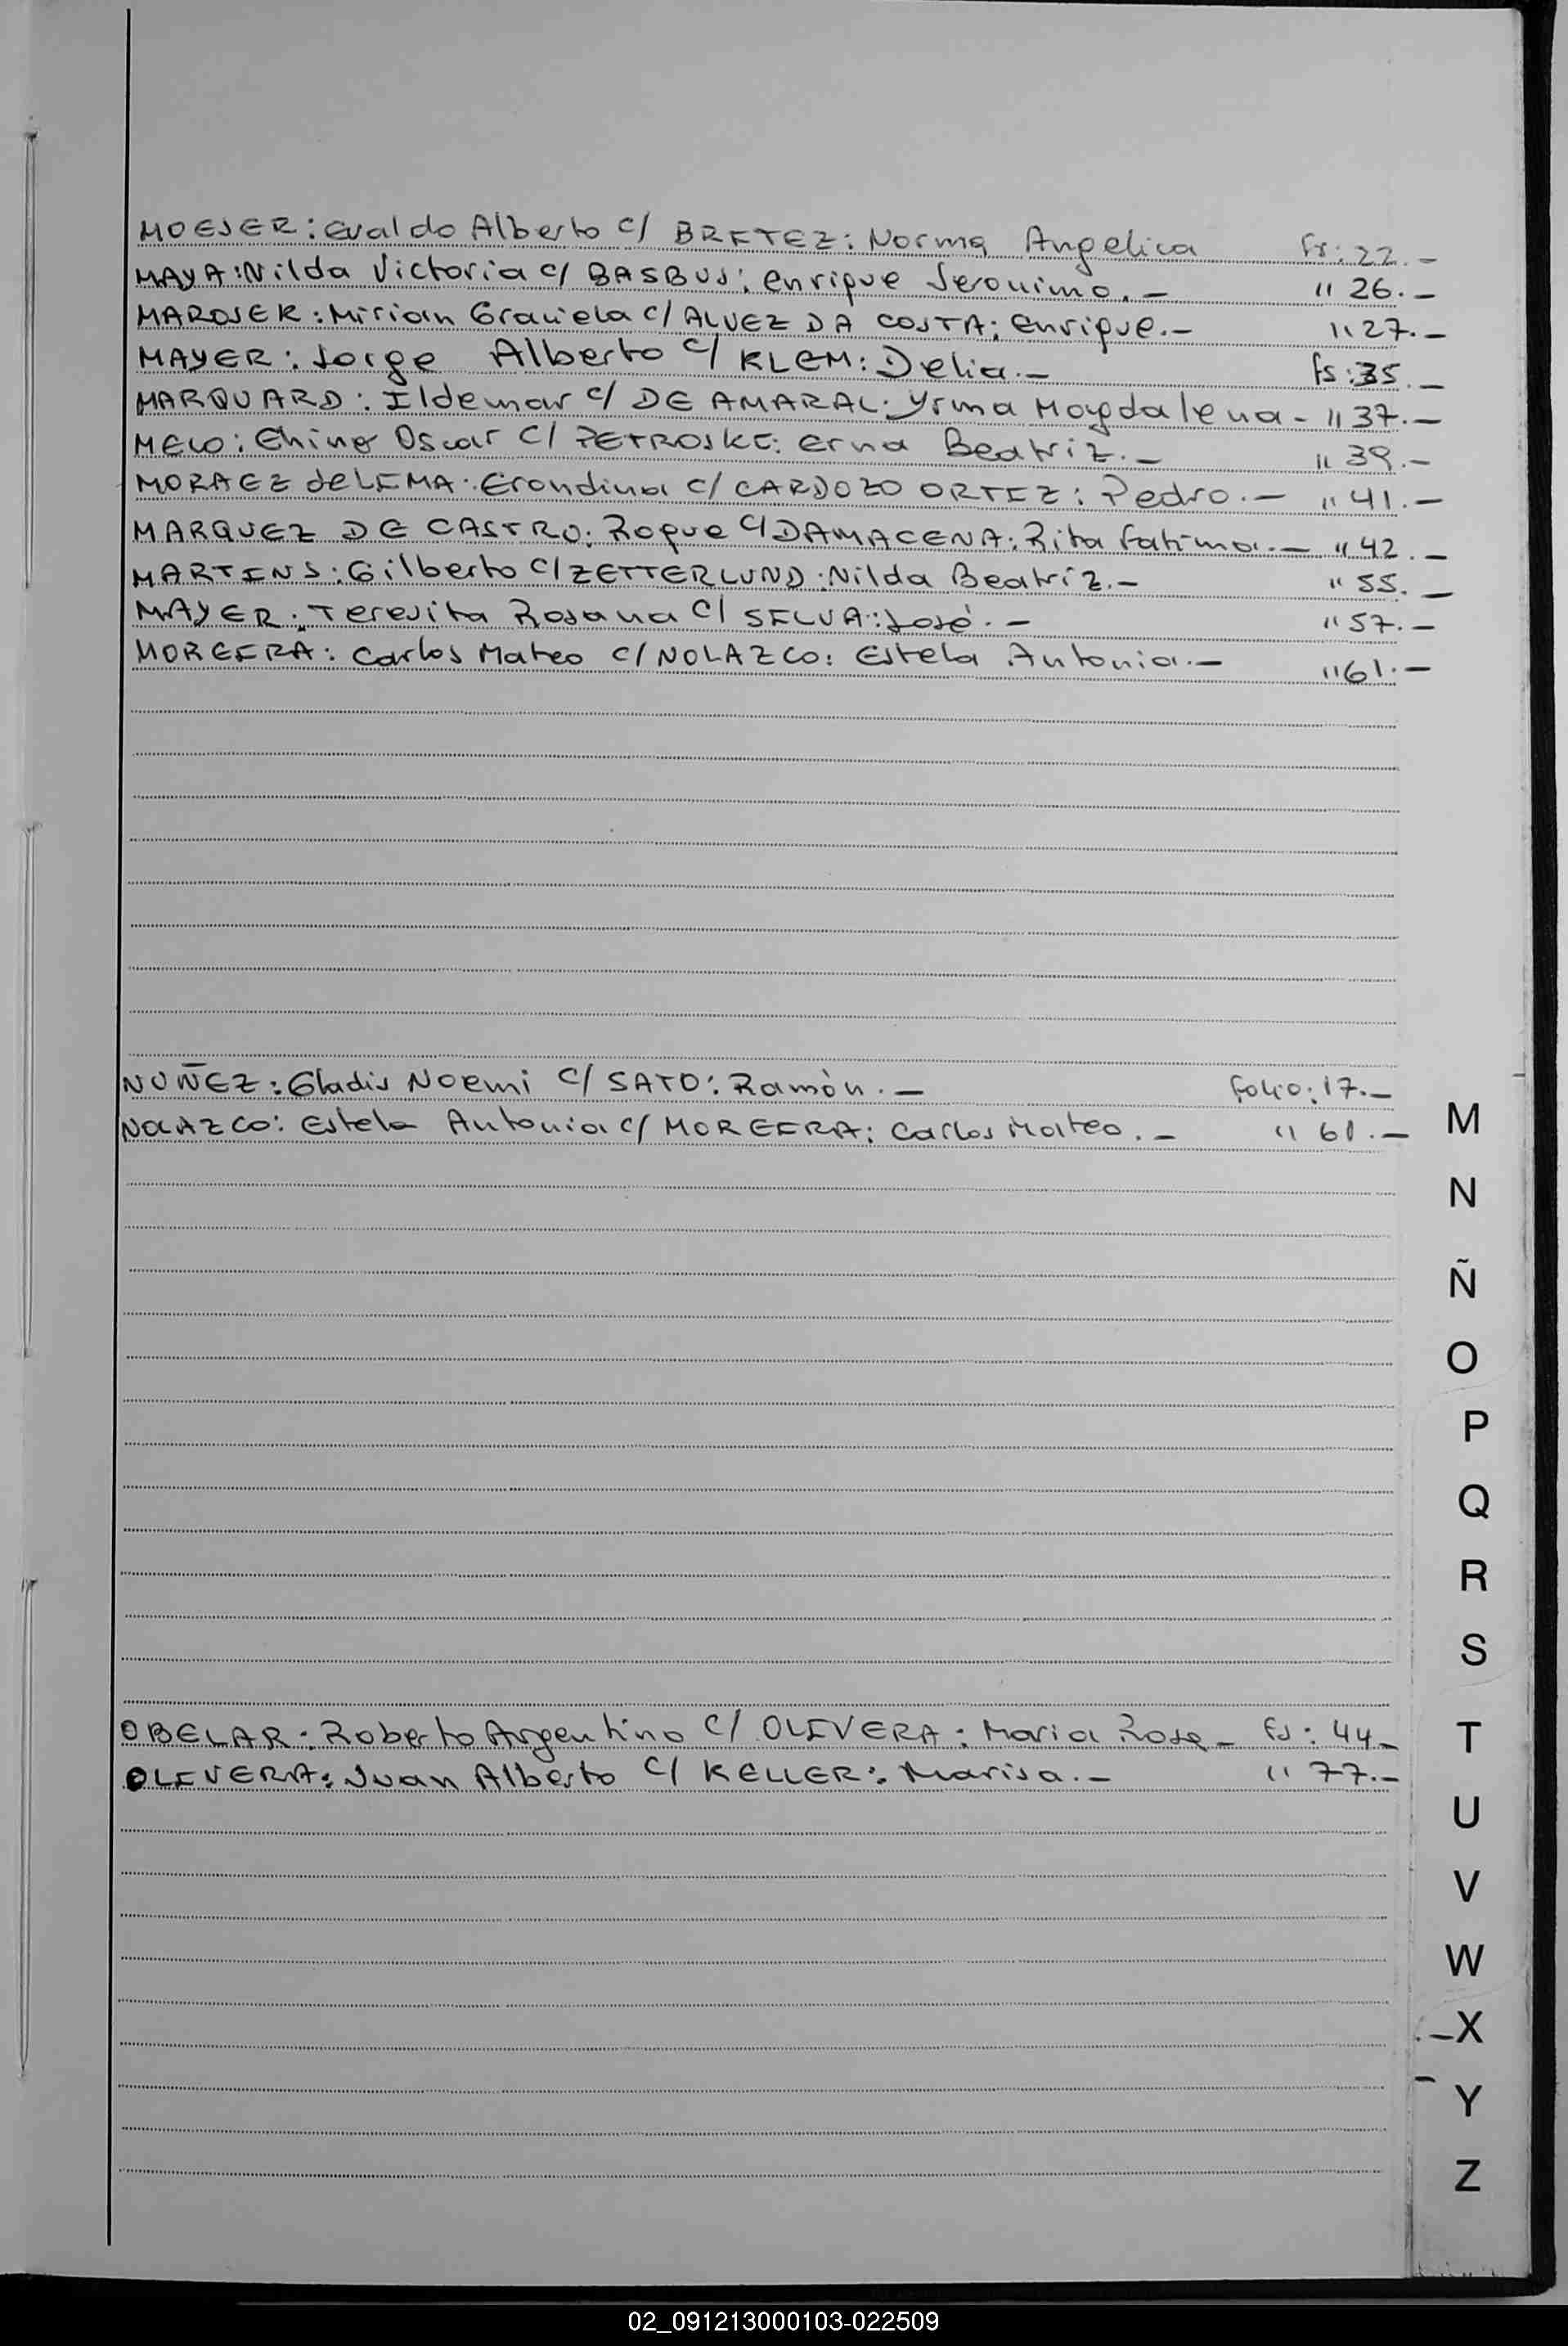 MOESER: Evaldo Alberto c/ BRITEZ: Norma Angelica Fs: 22.-
MAYA: Nilda Victoria c/ BASBUS: Enrique Jeronimo.- " 26.-
MAROSEK: Mirian Graciela c/ ALVEZ DA COSTA: Enrique.- " 27.-
MAYER: Jorge Alberto c/ KLEM: Delia.- Fs: 35.-
MARQUARD: Ildemar c/ DE AMARAL: Yrma Magdalena - " 37.-
MELO: Oscar c/ PETROSKI: Erna Beatriz.- " 39.-
MORAEZ de LIMA: Erondina c/ CARDOZO ORTIZ: Pedro.- " 41.-
MARQUEZ DE CASTRO: Roque c/ DAMACENA: Rita Fatima.- " 42.-
MARTINS: Gilberto c/ ZETTERLUND: Nilda Beatriz.- " 55.-
MAYER: Teresita Rosana c/ SILVA: José.- " 57.-
MOREIRA: Carlos Mateo c/ NOLAZCO: Estela Antonia.- " 61.-
NUÑEZ: Gladis Noemi c/ SATO: Ramón.- Folio: 17.-
NOLAZCO: Estela Antonia c/ MOREIRA: Carlos Mateo.- " 61.-
OBELAR: Roberto Argentino c/ OLIVERA: Maria Rosa - Fs: 44.-
OLIVERA: Juan Alberto c/ KELLER: Marisa.- " 77.-
M
N
Ñ
O
P
Q
R
S
T
U
V
W
X
Y
Z
02_091213000103-022509